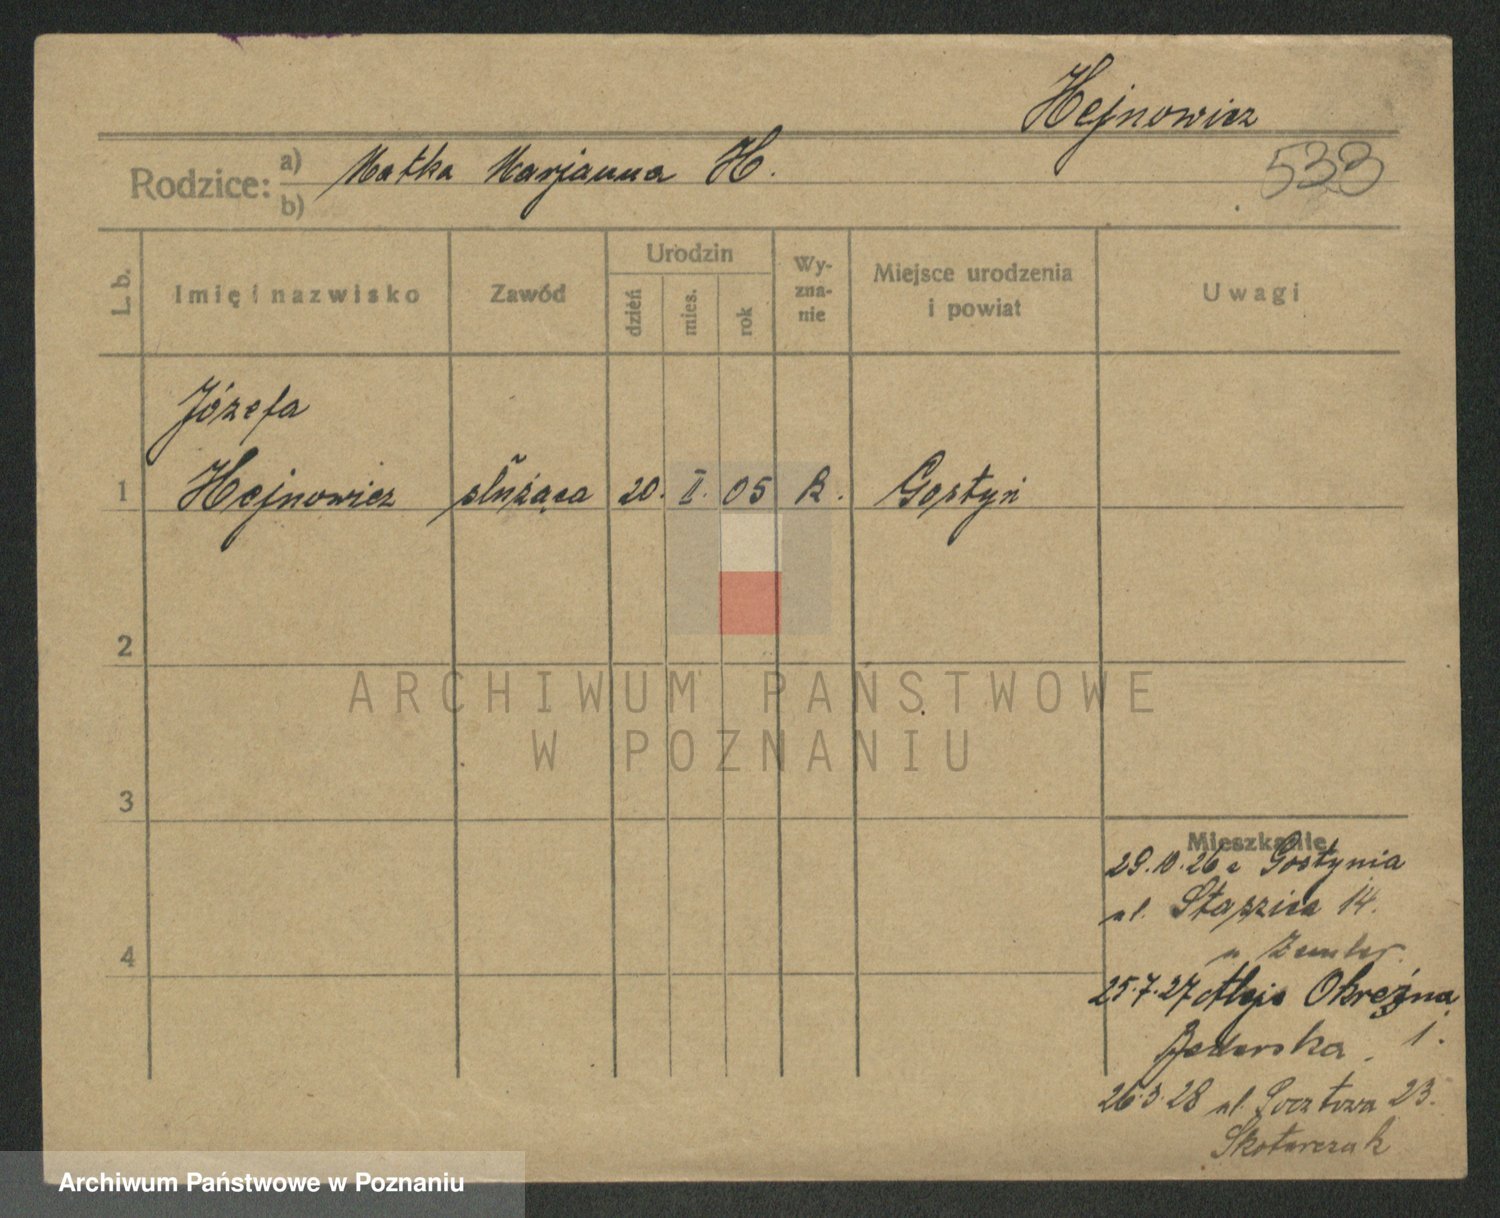 Hejnowicz
533
Rodzice: a) Matka Marjanna H.
b)
L. b. Imię i nazwisko Zawód Urodzin dzień mies. rok Wy-zna-nie Miejsce urodzenia i powiat Uwagi
Józefa
1 Hejnowicz służąca 20. II. 05 R. Gostyń
2
ARCHIWUM PAŃSTWOWE
W POZNANIU
3
Mieszkanie
29.10.26 z Gostynia
ul. Staszica 14.
4
25.7.27 Aleje Okrężna
1.
26.3.28 ul. Pocztowa 23.
Skotarczak
Archiwum Państwowe w Poznaniu